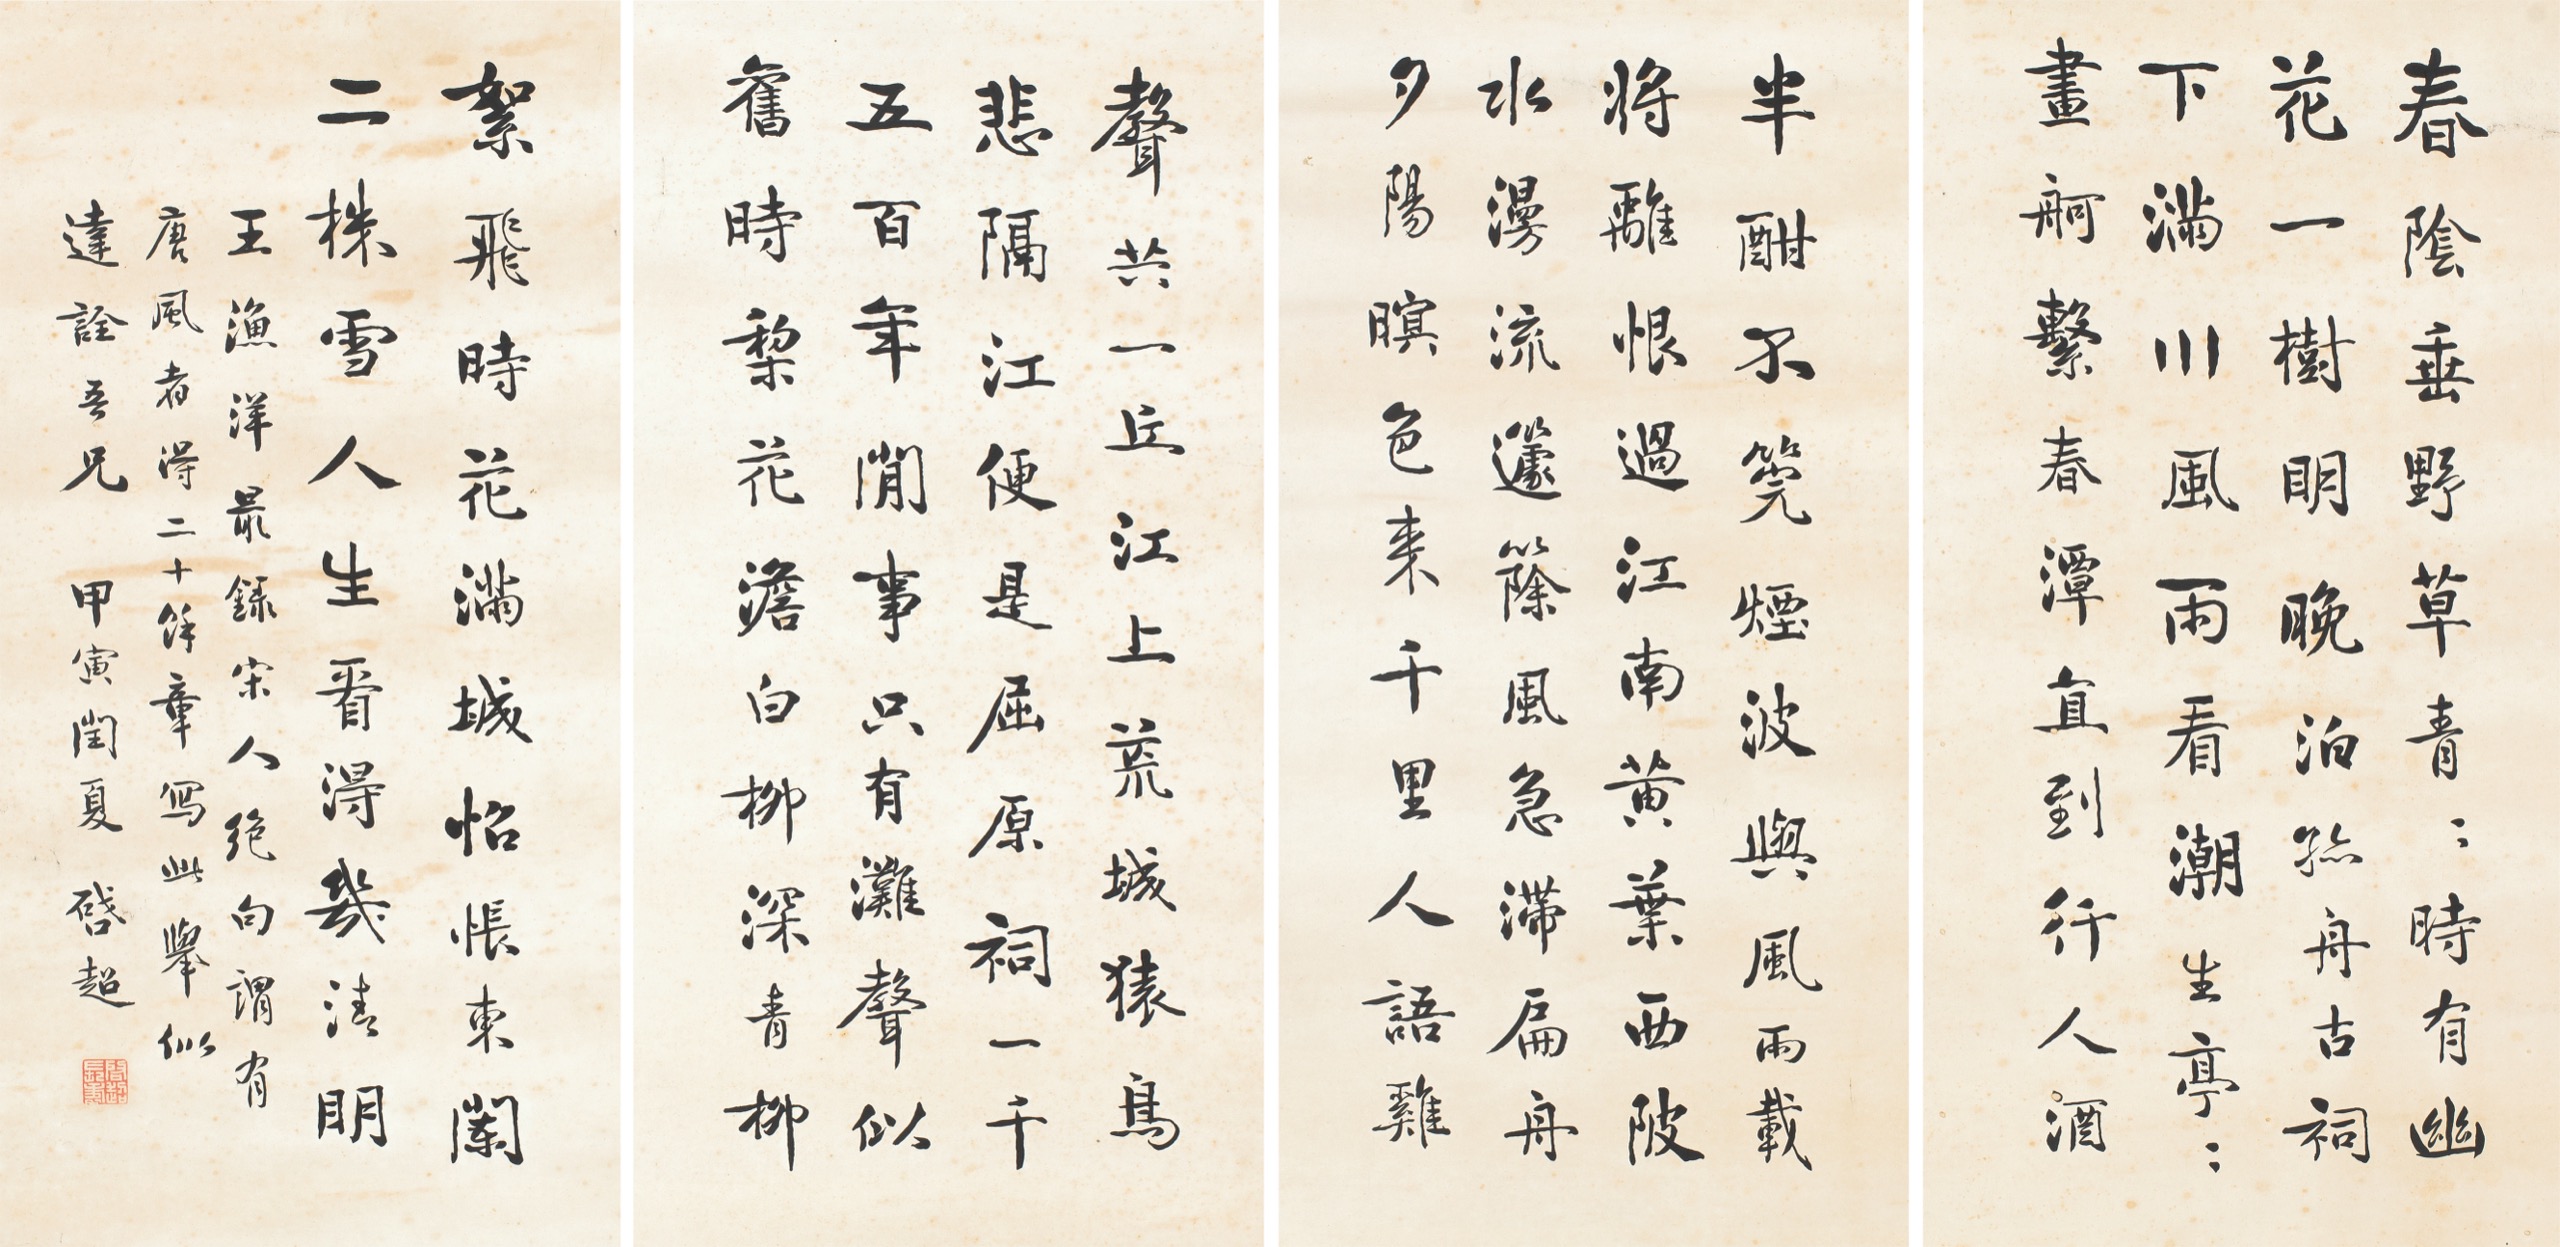 春陰垂野草青〻時有幽
花一樹明晚泊孤舟古祠
下滿川風雨看潮生亭〻
畫舸繫春潭直到行人酒
半酣不筦煙波與風雨載
將離恨過江南黄葉西陂
水漫流籧篨風急滯扁舟
夕陽暝色來千里人語雞
聲共一丘江上荒城猿鳥
悲隔江便是屈原祠一千
五百年閒事只有灘聲似
舊時棃花澹白柳深青柳
絮飛時花滿城惆悵東闌
二株雪人生看得幾清明
王漁洋最錄宋人絶句謂有
唐風者得二十餘章寫此舉似
達詮吾兄 甲寅閏夏 啓超